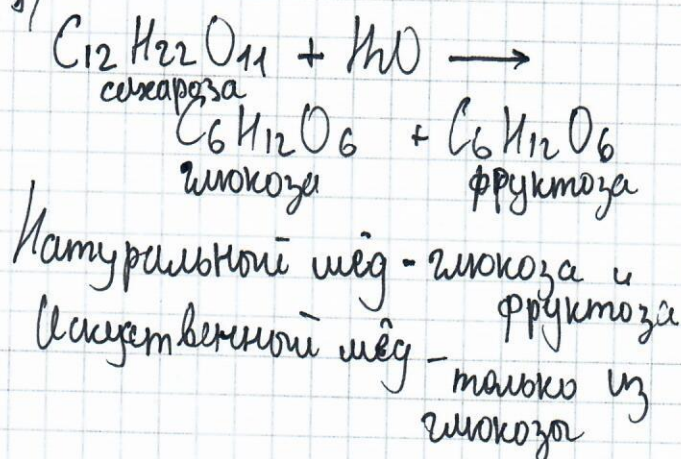 C12 H22 O11 + H2O ⟶
сахароза
C6 H12 O6 + C6 H12 O6
глюкоза фруктоза
Натуральный мёд - глюкоза и
фруктоза
Искуственный мёд -
только из
глюкозы